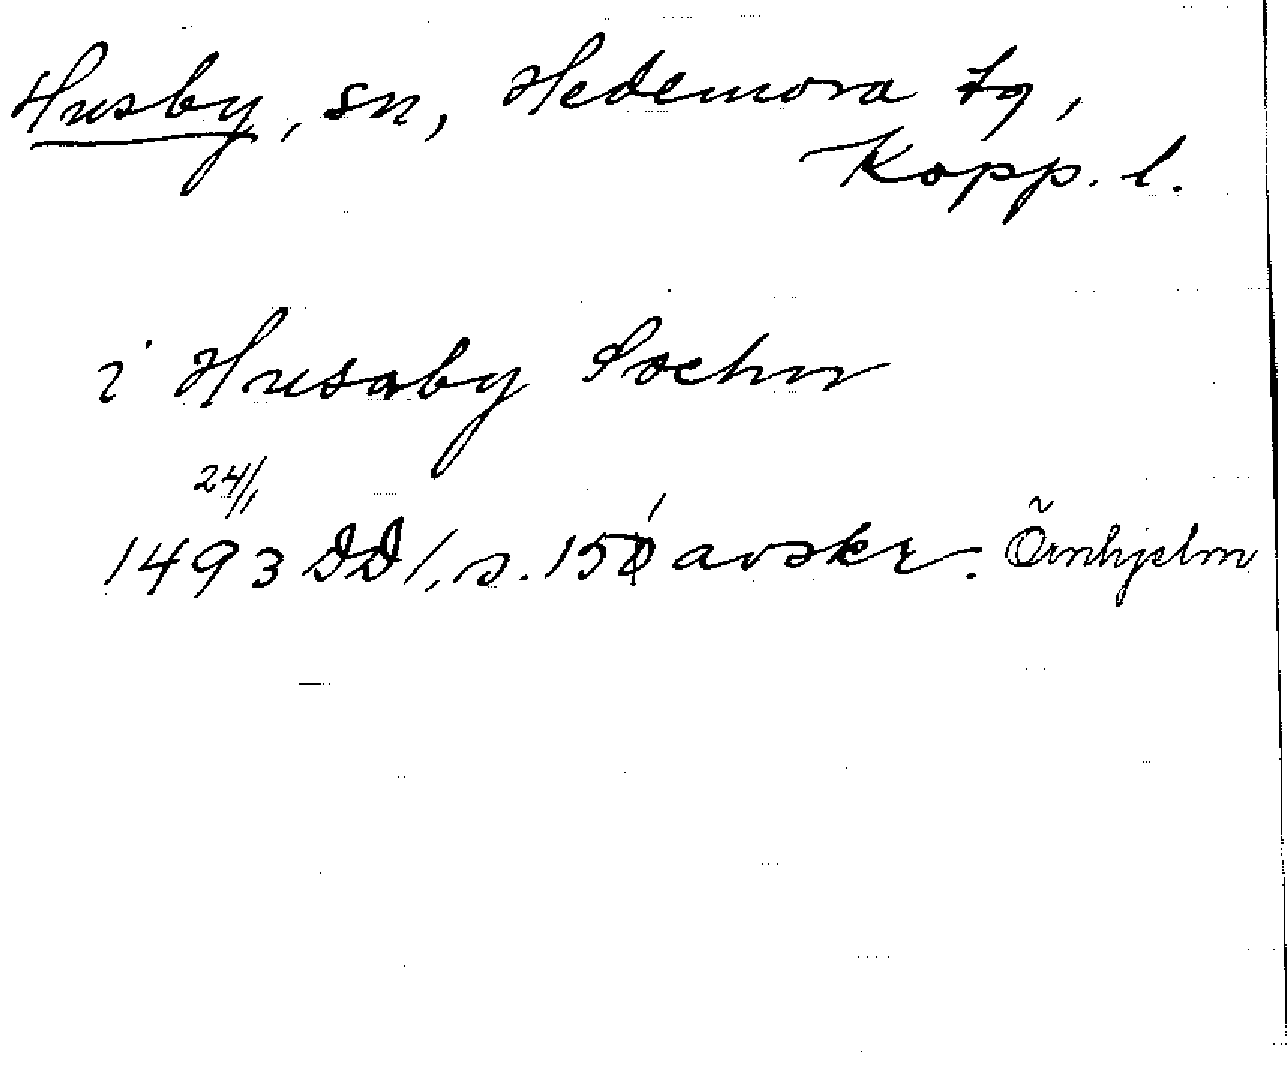 Husby, sn, Hedemora tg,
Kopp. l.
i Husaby Sochn
24/1
1493 DD 1, s. 151 avskr. Örnhjelm